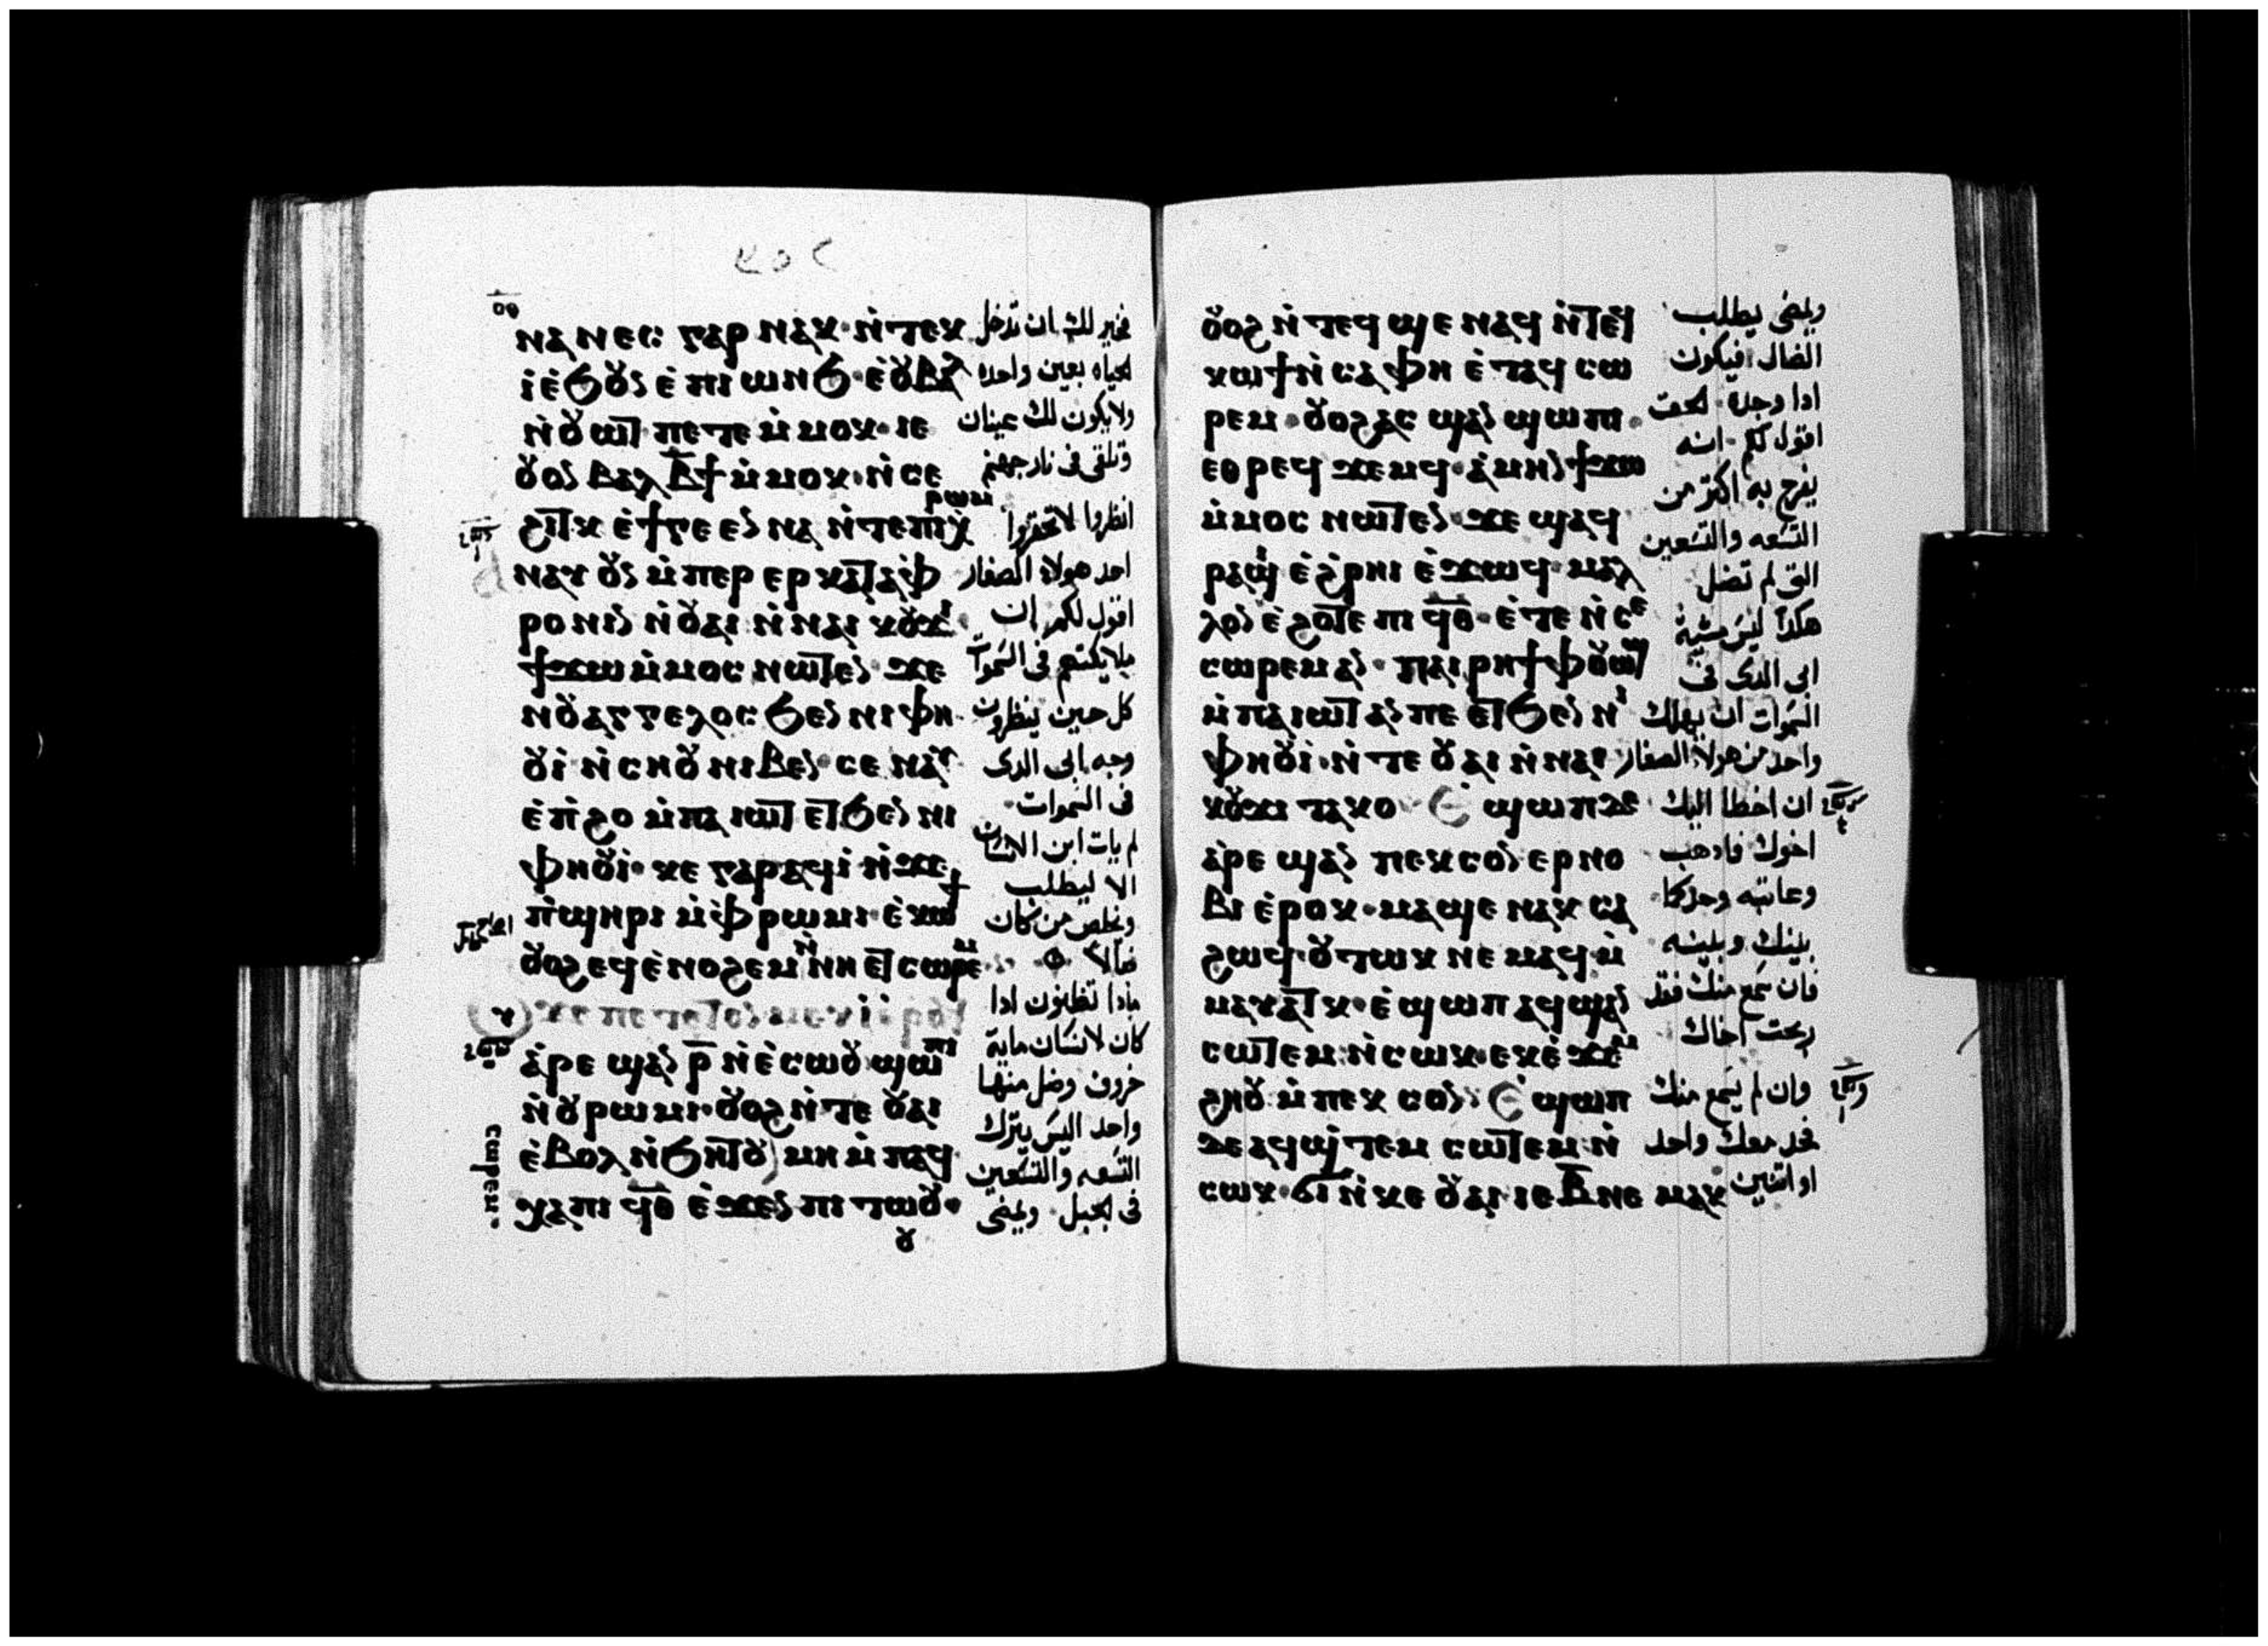 ⲛⲁⲛⲉⲥ ⲅⲁⲣ ⲛⲁⲕ ⲛ̀ⲧⲉⲕ
ⲓ̀ⲉ̀ϧⲟⲩⲛ ⲉ̀ⲡⲓⲱⲛϧ ⲉ̀ⲟⲩⲃⲁⲗ
ⲛ̀ⲟⲩⲱⲧ ⲡⲉⲧⲉ ⲙ̀ⲙⲟⲕ ⲓⲉ
ⲟⲩⲟⲛ ⲃⲁⲗ ⲃ̅ ϯ ⲙ̀ⲙⲟⲕ ⲛ̀ⲥⲉ
ϩⲓⲧⲕ ⲉ̀ϯⲅⲉⲉⲛⲛⲁ ⲛ̀ⲧⲉⲡⲓⲭⲣⲱⲙ
ⲛⲁⲩ ⲟⲩⲛ ⲙ̀ⲡⲉⲣ ⲉⲣⲕⲁⲧⲁⲫ
ⲣⲟⲛⲓⲛ ⲛ̀ⲟⲩⲁⲓ ⲛ̀ⲛⲁⲓ ⲕⲟⲩϫⲓ
ϯϫⲱ ⲙ̀ⲙⲟⲥ ⲛⲱⲧⲉⲛ ϫⲉ
ⲛⲟⲩⲁⲅⲅⲉⲗⲟⲥ ϧⲉⲛ ⲛⲓⲫⲏ
ⲟⲩⲓ̀ ⲛ̀ⲥⲏⲟⲩ ⲛⲓⲃⲉⲛ ⲥⲉⲛⲁⲩ
ⲉ̀ⲡ̀ϩⲟ ⲙ̀ⲡⲁⲓⲱⲧ ⲉⲧϧⲉⲛ ⲛⲓ
ⲫⲏⲟⲩⲓ̀ ⲕⲉ ⲅⲁⲣ ⲁϥⲓ̀ ⲛ̀ϫⲉ
ⲡ̀ϣⲏⲣⲓ ⲙ̀ⲫⲣⲱⲙⲓ ⲉ̀ⲕⲱϯ
ⲟⲩⲟϩ ⲉϥⲉ̀ⲛⲟϩⲉⲙ ⲛ̀ⲛⲏ ⲉⲧⲥⲱⲣⲉⲙ
ϫⲉ ⲡⲉⲧⲉⲧⲉⲛⲙⲉⲩⲓ̀ ⲉ̀ⲣⲟϥ
ⲁ̀ⲣⲉ ϣⲁⲛ ⲣ̅ ⲛ̀ⲉ̀ⲥⲱⲟⲩ ϣⲱⲡⲓ
ⲛ̀ⲟⲩⲣⲱⲙⲓ ⲟⲩⲟϩ ⲛ̀ⲧⲉ ⲟⲩⲁⲓ
ⲥⲱⲣⲉⲙ
ⲉ̀ⲃⲟⲗ ⲛ̀ϧⲏⲧⲟⲩ ⲙⲏ ⲙ̀ⲡⲁϥ
ⲭⲁ ⲡⲓ ϥ̅ⲑ̅ ⲉ̀ϫⲉⲛ ⲡⲓⲧⲱⲟⲩ
فخير لك ان تدخل
الحياه بعين واحده
ولا يكون لك عينان
وتلقى فى نار جهنم
انظروا لا تحقروا
احد هولاء الصغار
اقول لكم ان
ملايكتهم فى السموات
كل حين ينظرون
وجه ابى الدى
فى السموات
لم يات ابن الانسان
الا ليطلب
ويخلص من كان
ضالا
مادا تظنون ادا
كان لانسان ماية
خروف وضل منها
واحد اليس يترك
التسعه والتسعين
فى الجبل ويمضى
ⲟⲩⲟϩ ⲛ̀ⲧⲉϥϣⲉ ⲛⲁϥ ⲛ̀ⲧⲉϥ
ⲕⲱϯ ⲛ̀ⲥⲁ ⲫⲏ ⲉ̀ⲧⲁϥⲥⲱ
ⲣⲉⲙ ⲟⲩⲟϩ ⲁⲥϣⲁⲛ ϣⲱⲡⲓ
ⲉⲑⲣⲉϥ ϫⲉⲙϥ ⲁ̀ⲙⲏⲛ ϯϫⲱ
ⲙ̀ⲙⲟⲥ ⲛⲱⲧⲉⲛ ϫⲉ ϣⲁϥ
ⲣⲁϣⲓ ⲉ̀ϩⲣⲏⲓ ⲉ̀ϫⲱϥ ⲙⲁⲗ
ⲗⲟⲛ ⲉ̀ϩⲟⲧⲉ ⲡⲓ ϥ̅ⲑ̅ ⲉ̀ⲧⲉ ⲛ̀ⲥⲉ
ⲥⲱⲣⲉⲙ ⲁⲛ ⲡⲁⲓⲣⲏϯ ⲫⲟⲩⲱϣ
ⲙ̀ⲡⲁⲓⲱⲧ ⲁⲛ ⲡⲉ ⲉⲧϧⲉⲛ ⲛⲓ
ⲫⲏⲟⲩⲓ̀ ⲛ̀ⲧⲉ ⲟⲩⲁⲓ ⲛ̀ⲛⲁⲓ
ⲕⲟⲩϫⲓ ⲧⲁⲕⲟ ⲉ̀ϣⲱⲡ ϫⲉ
ⲁ̀ⲣⲉ ϣⲁⲛ ⲡⲉⲕⲥⲟⲛ ⲉⲣⲛⲟ
ⲃⲓ ⲉ̀ⲣⲟⲕ ⲙⲁϣⲉ ⲛⲁⲕ ⲥⲁ
ϩⲱϥ ⲟⲩⲧⲱⲕ ⲛⲉⲙⲁϥ ⲙ̀
ⲙⲁⲩⲁⲧⲕ ⲉ̀ϣⲱⲡ ⲁϥϣⲁⲛ
ⲥⲱⲧⲉⲙ ⲛ̀ⲥⲱⲕ ⲉⲕⲉ̀ϫⲉⲙ
ϩⲏⲟⲩ ⲙ̀ⲡⲉⲕⲥⲟⲛ ⲉ̀ϣⲱⲡ
ϫⲉ ⲁϥϣ̀ⲧⲉⲙ ⲥⲱⲧⲉⲙ ⲛ̀
ⲥⲱⲕ ϭⲓ ⲛ̀ⲕⲉ ⲟⲩⲁⲓ ⲓⲉ ⲃ̅ ⲛⲉⲙⲁⲕ
ويمضى يطلب
الضال فيكون
ادا وجده الحق
اقول لكم انه
يفرح به اكتر من
التسعه والتسعين
التى لم تضل
هكذا ليس مشية
ابى الدى فى
السموات ان يهلك
واحد من هولاء الصغار
ان اخطا اليك
اخوك فادهب
وعاتبه وحدكما
بينك وبينه
فان سمع منك فقد
ربحت اخاك
وان لم يسمع منك
فخد معك واحد
او اتنين